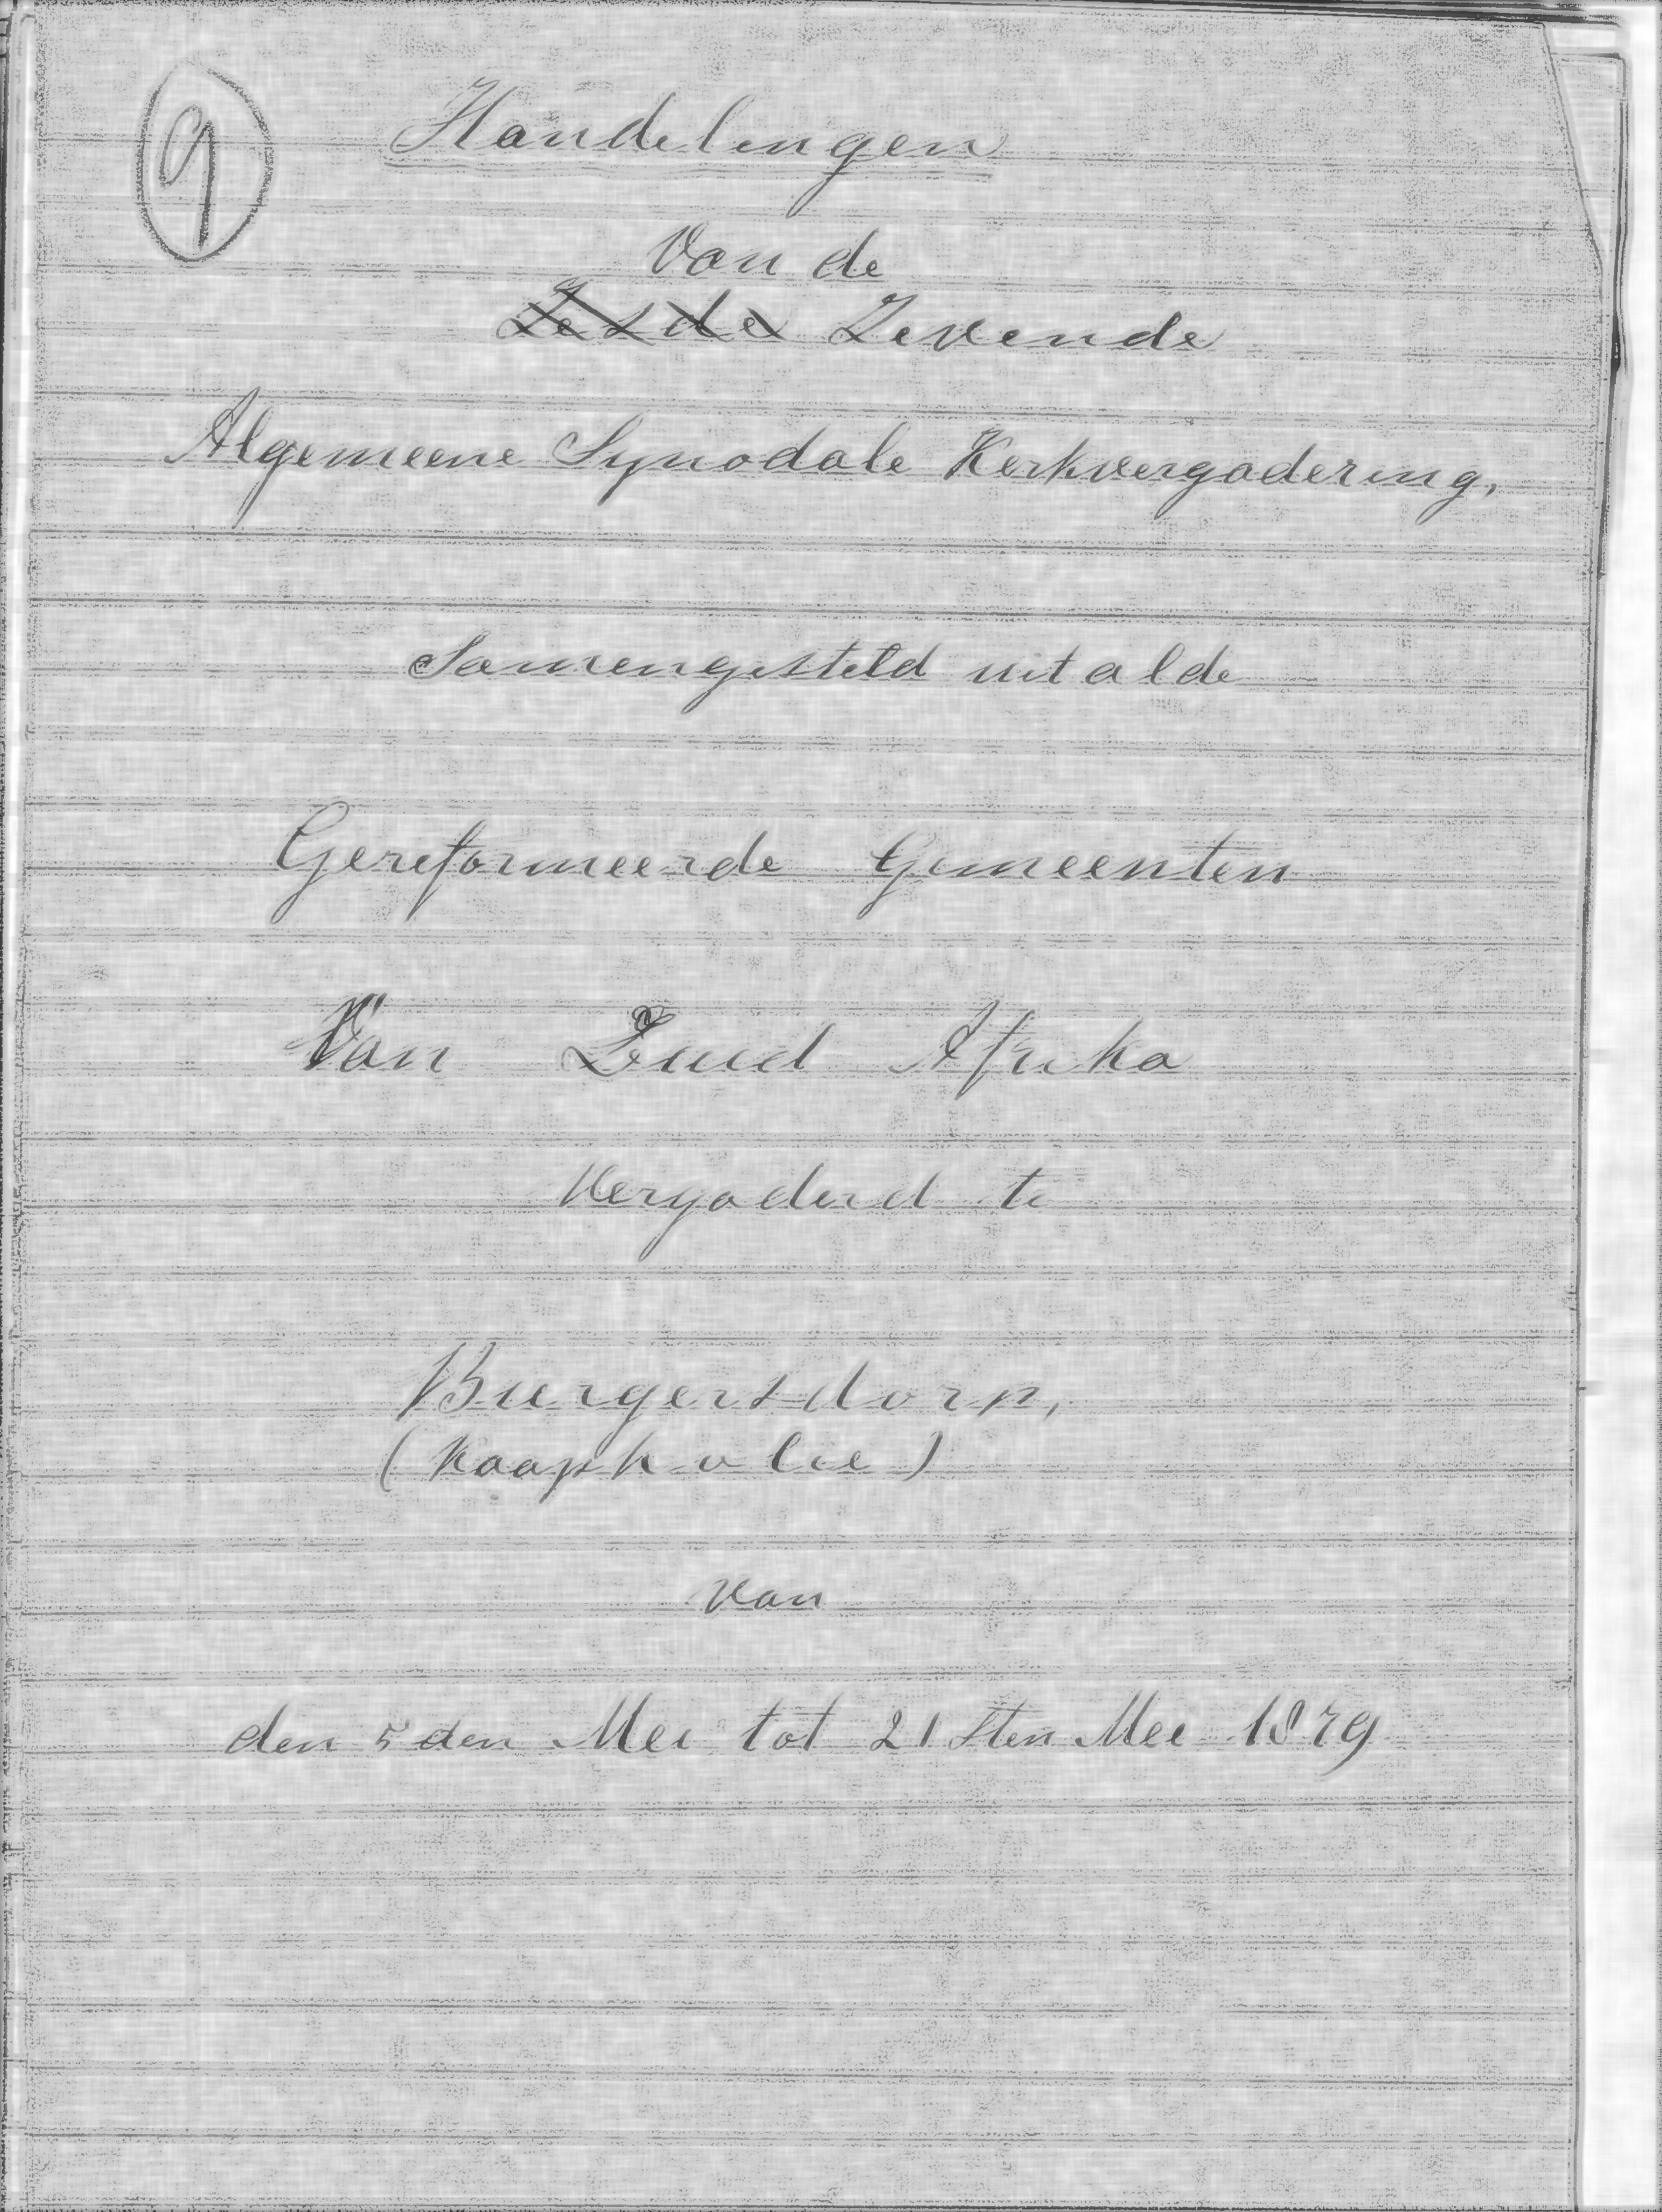 9
Handelingen
Van de
Zesde Zevende
Algemeene Synodale Kerkvergadering,
Samengesteld uit al de
Gereformeerde Gemeenten
Van Zuid Afrika
Vergaderd te
Burgersdorp,
(Kaapkolie)
van
den 5 den Mei tot 21 sten Mei 1879